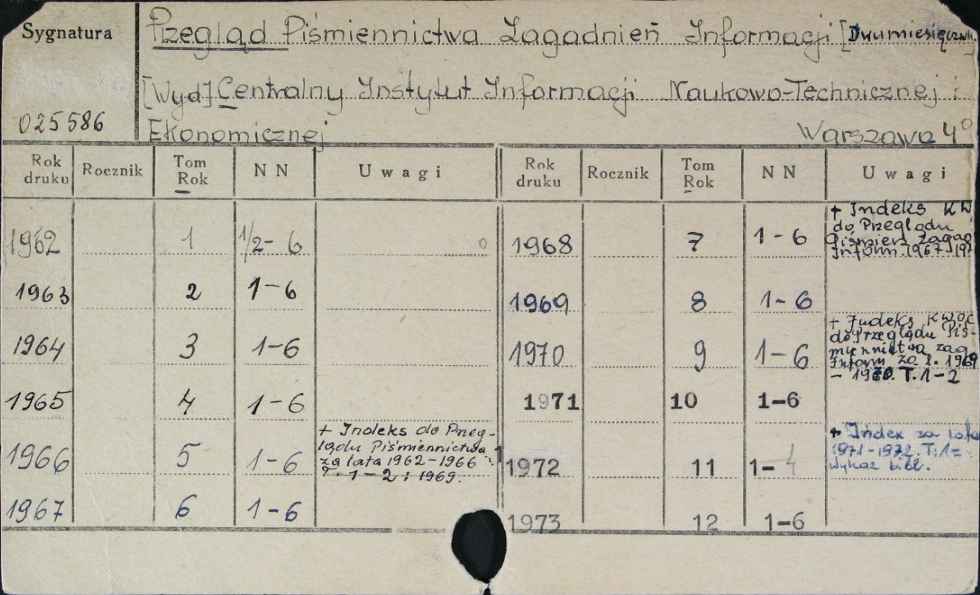 Sygnatura
Przegląd Piśmiennictwa Zagadnień Informacji [Dwumiesięcznik
[Wyd] Centralny Instytut Informacji Naukowo-Technicznej i
025586 Ekonomicznej Warszawa 4°
Rok druku Rocznik Tom Rok NN Uwagi Rok druku Rocznik Tom Rok NN Uwagi
1962 1 1/2-6 1968 7 1-6 + Indeks KW
do Przeglądu
Piśmien. Zagad
Inform. 1967
1963 2 1-6 1969 8 1-6
1964 3 1-6 1970 9 1-6 + Indeks KWOC
do Przeglądu Piś-
miennictwa zaga
Inform za l. 1969
- 1970. T. 1-2
1965 4 1-6 1971 10 1-6
1966 5 1-6 + Indeks do Przeg-
lądu Piśmiennictwa
za lata 1962-1966
1-2 i 1969.
1972 11 1-4 + Index za lata
1971-1972. T. 1=
wykaz bibl.
1967 6 1-6 1973 12 1-6